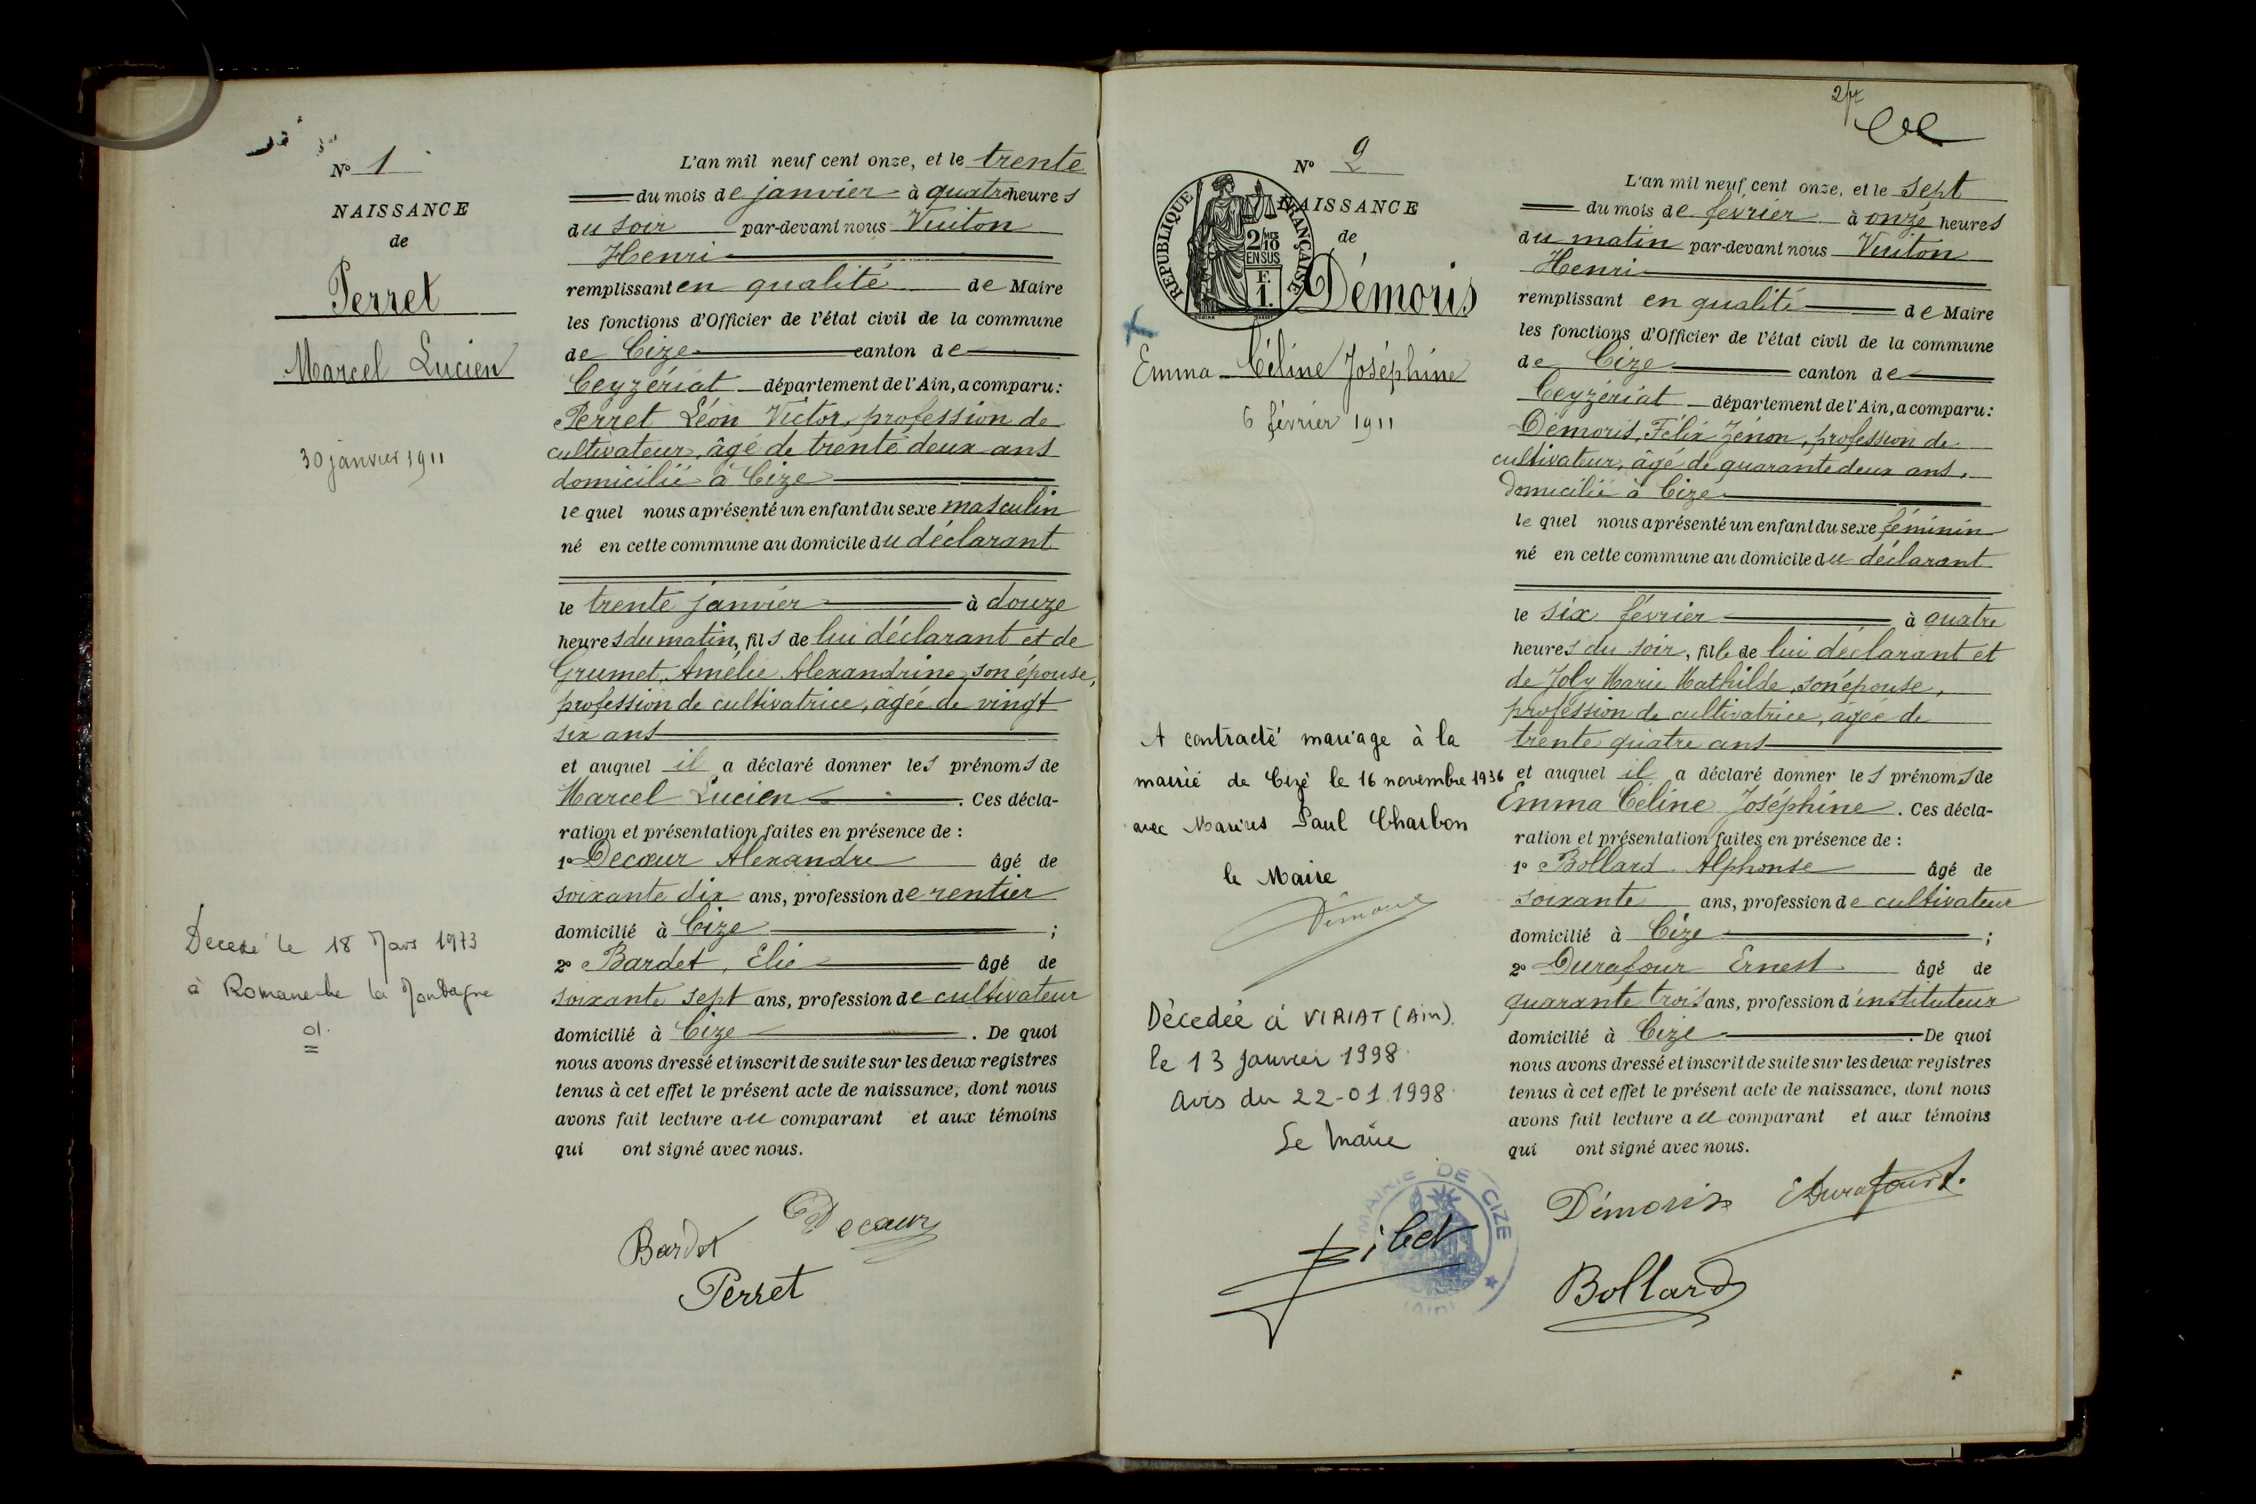 N° 1
NAISSANCE
de
Perret
Marcel Lucien
30 janvier 1911
Décédé le 18 Mars 1973
à Romaneche la Montagne
L'an mil neuf cent onze, et le trente
du mois de janvier à quatre heures
du soir par-devant nous Vuiton
Henri
remplissant en qualité de Maire
les fonctions d'Officier de l'état civil de la commune
de Cize canton de
Ceyzériat département de l'Ain, a comparu :
Perret Léon Victor, profession de
cultivateur, âgé de trente deux ans
domicilié à Cize
le quel nous a présenté un enfant du sexe masculin
né en cette commune au domicile du déclarant
le trente janvier à douze
heures du matin, fils de lui déclarant et de
Grumet, Amélie Alexandrine, son épouse,
profession de cultivatrice, âgée de vingt
six ans
et auquel il a déclaré donner les prénoms de
Marcel Lucien . Ces décla-
ration et présentation faites en présence de :
1° Decœur Alexandre âgé de
soixante dix ans, profession de rentier
domicilié à Cize ;
2° Bardet, Elie âgé de
soixante sept ans, profession de cultivateur
domicilié à Cize . De quoi
nous avons dressé et inscrit de suite sur les deux registres
tenus à cet effet le présent acte de naissance, dont nous
avons fait lecture au comparant et aux témoins
qui ont signé avec nous.
Bardet Decœur
Perret
N° 2
NAISSANCE
de
RÉPUBLIQUE FRANÇAISE
2/10 EN SUS
F. 1.
Démoris
Emma Céline Joséphine
6 février 1911
A contracté mariage à la
mairie de Cize le 16 novembre 1936
avec Marius Paul Charbon
le Maire
Décedée à VIRIAT (Ain).
le 13 Janvier 1998
avis du 22-01.1998
Le Maire
MAIRIE DE CIZE
(AIN)
L'an mil neuf cent onze, et le sept
du mois de février à onze heures
du matin par-devant nous Vuiton
Henri
remplissant en qualité de Maire
les fonctions d'Officier de l'état civil de la commune
de Cize canton de
Ceyzériat département de l'Ain, a comparu :
Démoris, Félix Zénon, profession de
cultivateur, âgé de quarante deux ans,
domicilié à Cize
le quel nous a présenté un enfant du sexe féminin
né en cette commune au domicile du déclarant
le six février à quatre
heures du soir, fille de lui déclarant et
de Joly Marie Mathilde, son épouse,
profession de cultivatrice, âgée de
trente quatre ans
et auquel il a déclaré donner les prénoms de
Emma Céline Joséphine . Ces décla-
ration et présentation faites en présence de :
1° Bollard Alphonse âgé de
soixante ans, profession de cultivateur
domicilié à Cize ;
2° Durafour Ernest âgé de
quarante trois ans, profession d'instituteur
domicilié à Cize . De quoi
nous avons dressé et inscrit de suite sur les deux registres
tenus à cet effet le présent acte de naissance, dont nous
avons fait lecture au comparant et aux témoins
qui ont signé avec nous.
Démoris EDurafour
Bollard